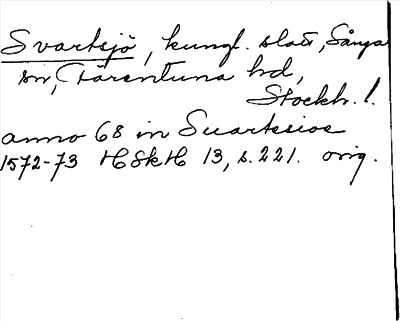 Svartsjö, kungl. slott, Sånga
sn, Färentuna hd,
Stockh. l.
anno 68 in Suartesioe
1572-73 HSkH 13, s. 221. orig.